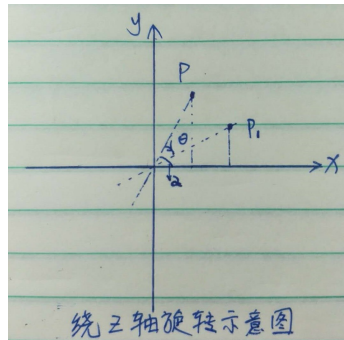 y
P
θ
P₁
x
α
绕Z轴旋转示意图